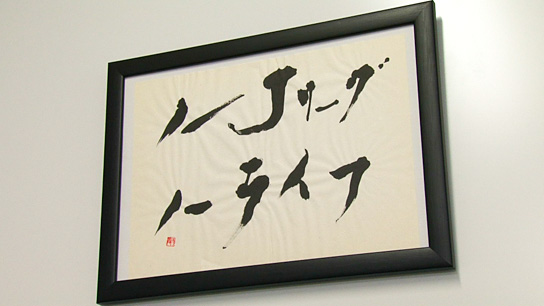 ノーJリーグ
ノーライフ